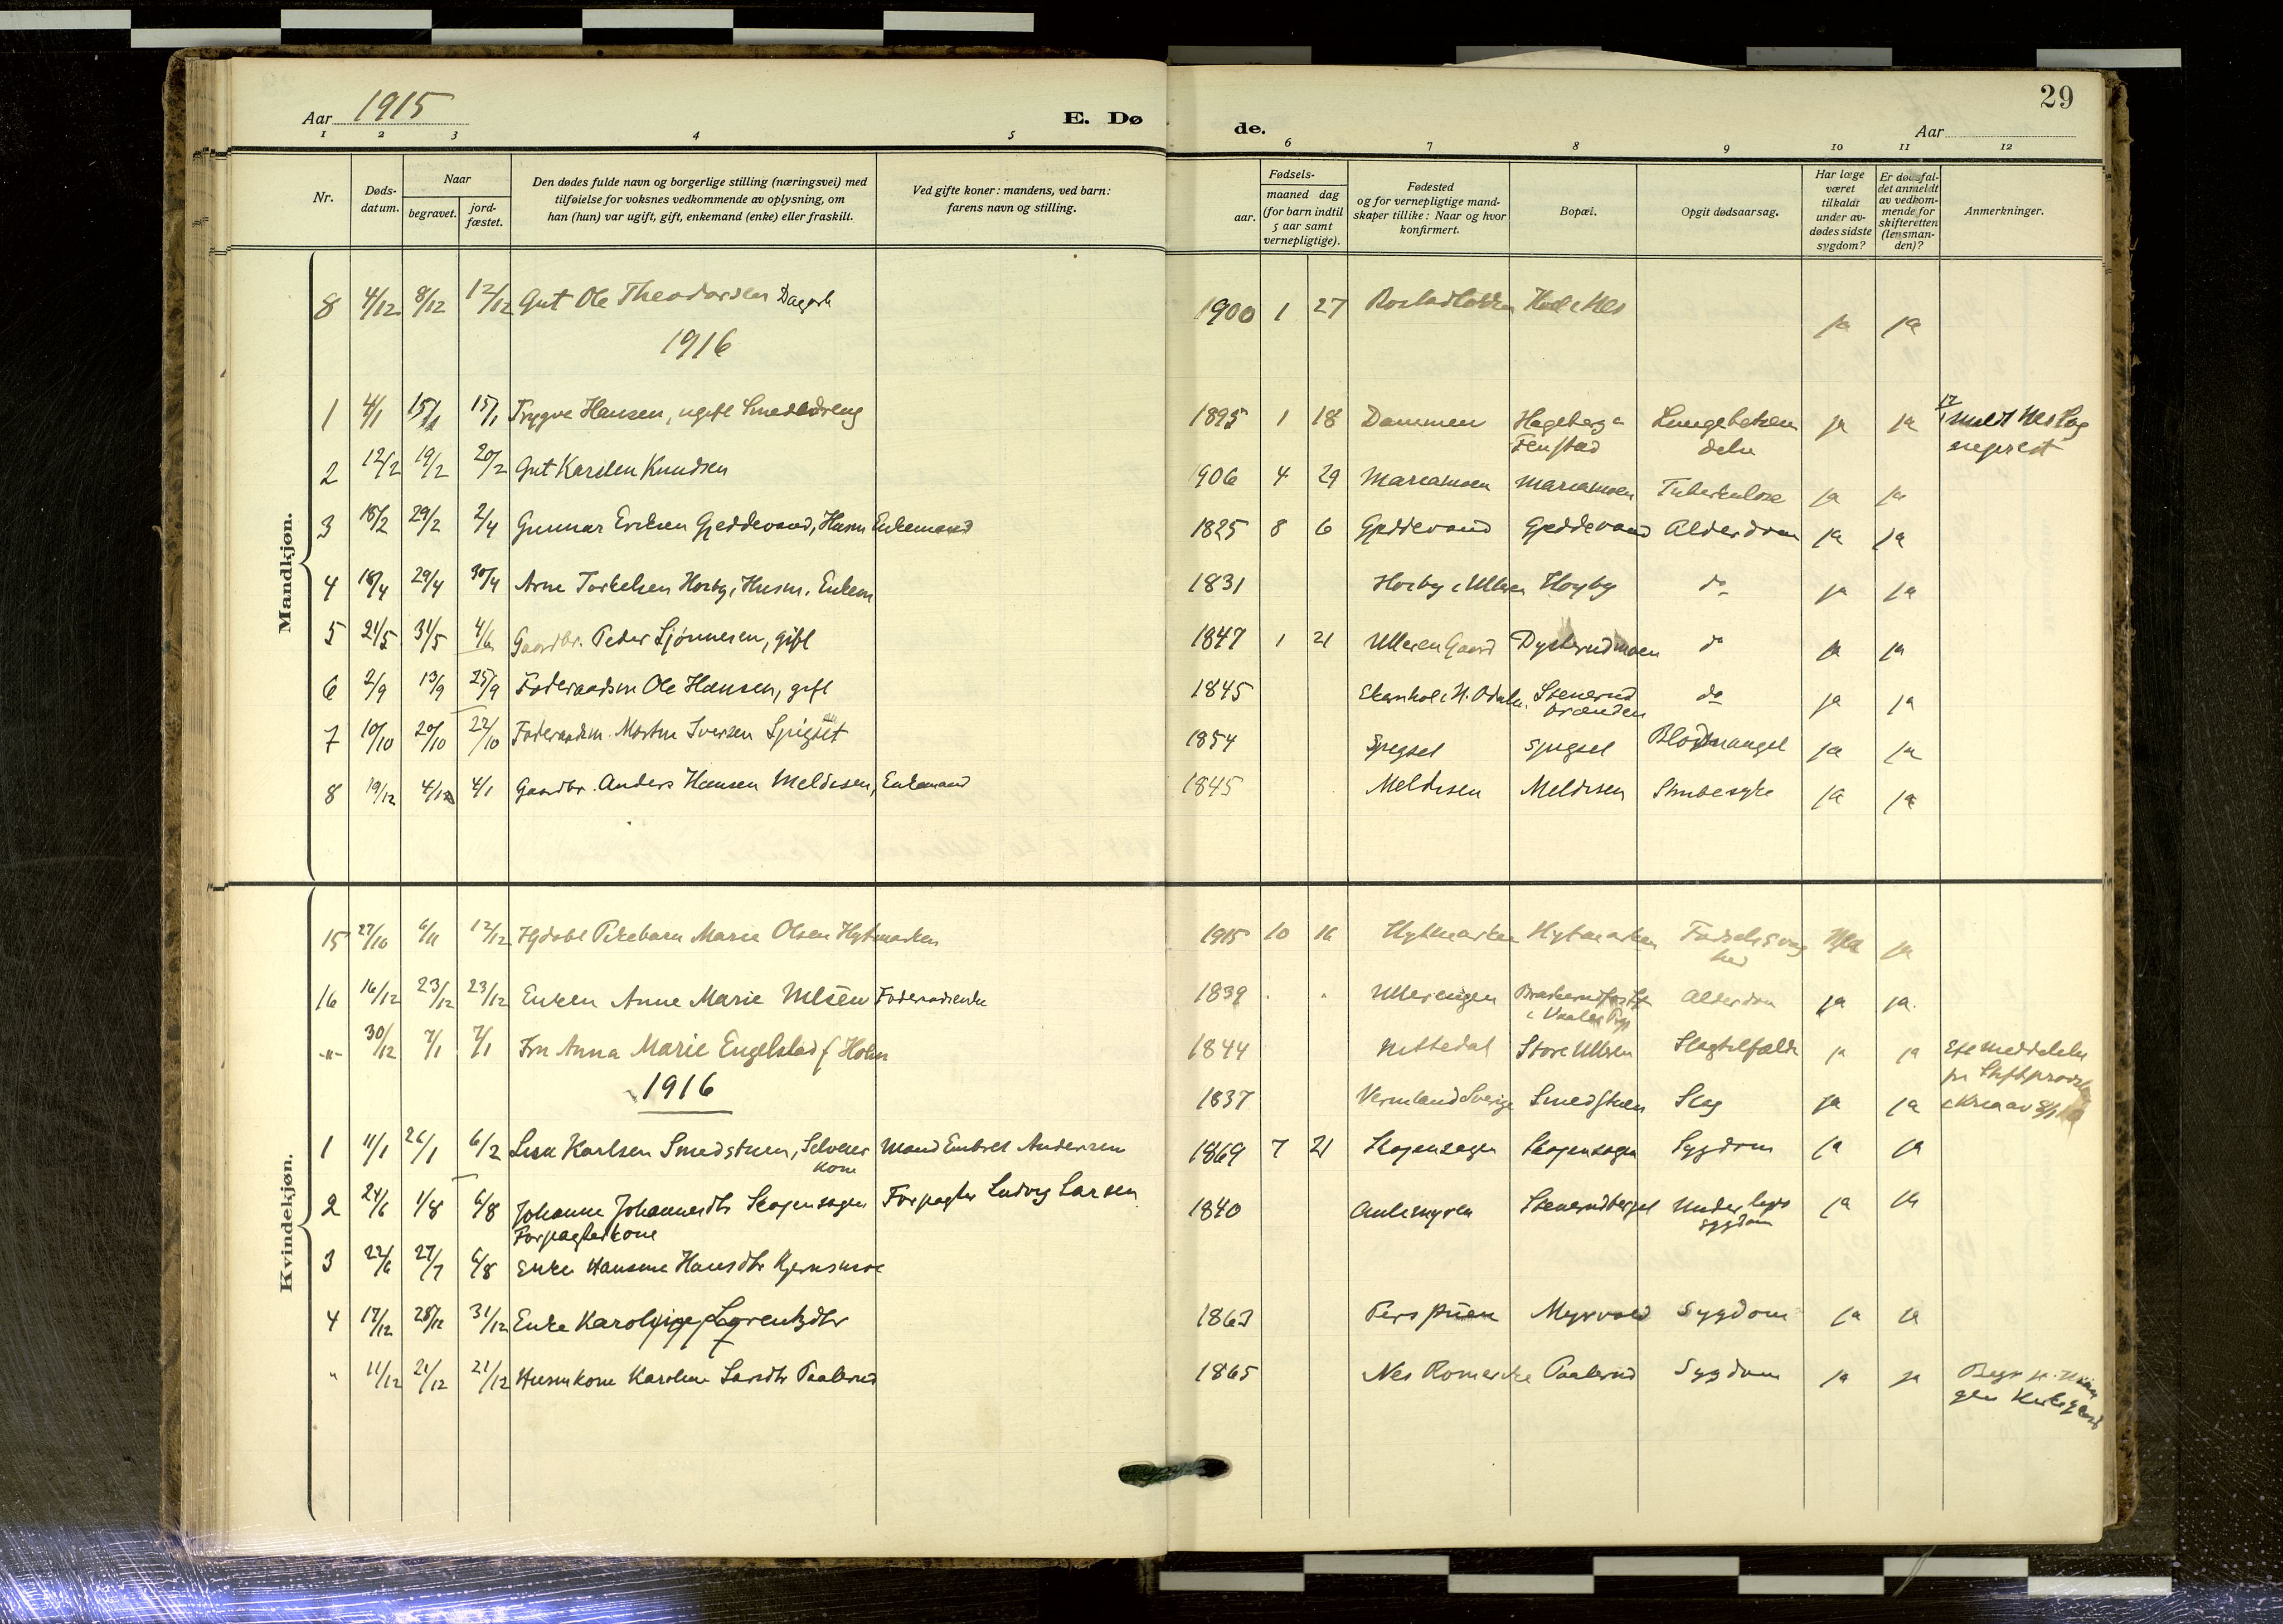 Aar 1915
E. Dø
de.
29
Aar
1 2 3 4 5 6 7 8 9 10 11 12
Nr.
Døds-
datum.
Naar
begravet.
jord-
fæstet.
Den dødes fulde navn og borgerlige stilling (næringsvei) med
tilføielse for voksnes vedkommende av oplysning, om
han (hun) var ugift, gift, enkemand (enke) eller fraskilt.
Ved gifte koner: mandens, ved barn:
farens navn og stilling.
Fødsels-
aar.
maaned dag
(for barn indtil
5 aar samt
vernepligtige).
Fødested
og for vernepligtige mand-
skaper tillike: Naar og hvor
konfirmert.
Bopæl.
Opgit dødsaarsag.
Har læge
været
tilkaldt
under av-
dødes sidste
sygdom?
Er dødsfal-
det anmeldt
av vedkom-
mende for
skifteretten
(lensman-
den)?
Anmerkninger.
Mandkjøn.
8 4/12 8/12 12/12 Gut Ole Theodorsen 1900 1 27 ja ja
1916
1 4/1 15/1 15/1 Trygve Hansen, ugift 1895 1 18 Dammen Hageberg
Fenstad
ja ja
2 12/2 19/2 20/2 Gut Karsten Knudsen 1906 4 29 Mariamoen Mariamoen Tuberkulose ja ja
3 18/2 29/2 2/4 Gunnar Eriksen Gjeddevand, Husm Enkemand 1825 8 6 Gjeddevand Gjeddevand Alderdom ja ja
4 18/4 29/4 30/4 Arne Torkelsen Horby, Husm. Enkem 1831 do ja ja
5 21/5 31/5 4/6 Gaardbr. Peder Sjønnesen, gift 1847 1 21 Ulleren Gaard Dysterudmoen do ja ja
6 2/9 13/9 25/9 Føderaadsm Ole Hansen, gift 1845 Stenerud
brænden do ja ja
7 10/10 20/10 22/10 Føderaadsm. Martin Iversen Spigset 1854 Spigset Spigset Blodmangel ja ja
8 19/12 4/1 4/1 Gaardbr. Anders Hansen Meldisen, Enkemand 1845 Meldisen Meldisen Strubesyke ja ja
Kvindekjøn.
15 27/10 6/11 12/12 Hjdøbt Pikebarn Marie Olsen Hytmarken 1915 10 16 Hytmarken Hytmarken Fødselssvag
hed ja
16 16/12 23/12 23/12 Enken Anne Marie Nilsen Føderaadsenke 1839 Ullerengen Alderdom ja ja.
-"- 30/12 7/1 7/1 Fru Anna Marie Engelstad f Holm 1844 Nittedal Store Ulleren Slagtilfælde ja ja
1916
1837 Vermland Sverige Smedstuen Slag ja ja
1 11/1 26/1 6/2 Lisa Karlsen Smedstuen, Selveier
kone Mand Embret Andersen
1869 7 21 Skogensagen Skogensagen Sygdom ja ja
2 24/6 1/8 6/8 Johanne Johannesdtr Skogensagen
Forpagterkone Forpagter Ludvig Larsen
1840 Aulemyren Stenerudberget Underlivs
sygdom ja ja
3 22/6 27/7 6/8 Enke Hansine Hansdtr Kjernsmoe
4 17/12 28/12 31/12 Enke Karoline Lorentzdtr 1863 Persstuen Myrvold Sygdom ja ja
" 11/12 21/12 21/12 Husmkone Karoline Larsdtr Paalerud 1865 Nes Romerike Paalerud Sygdom ja ja